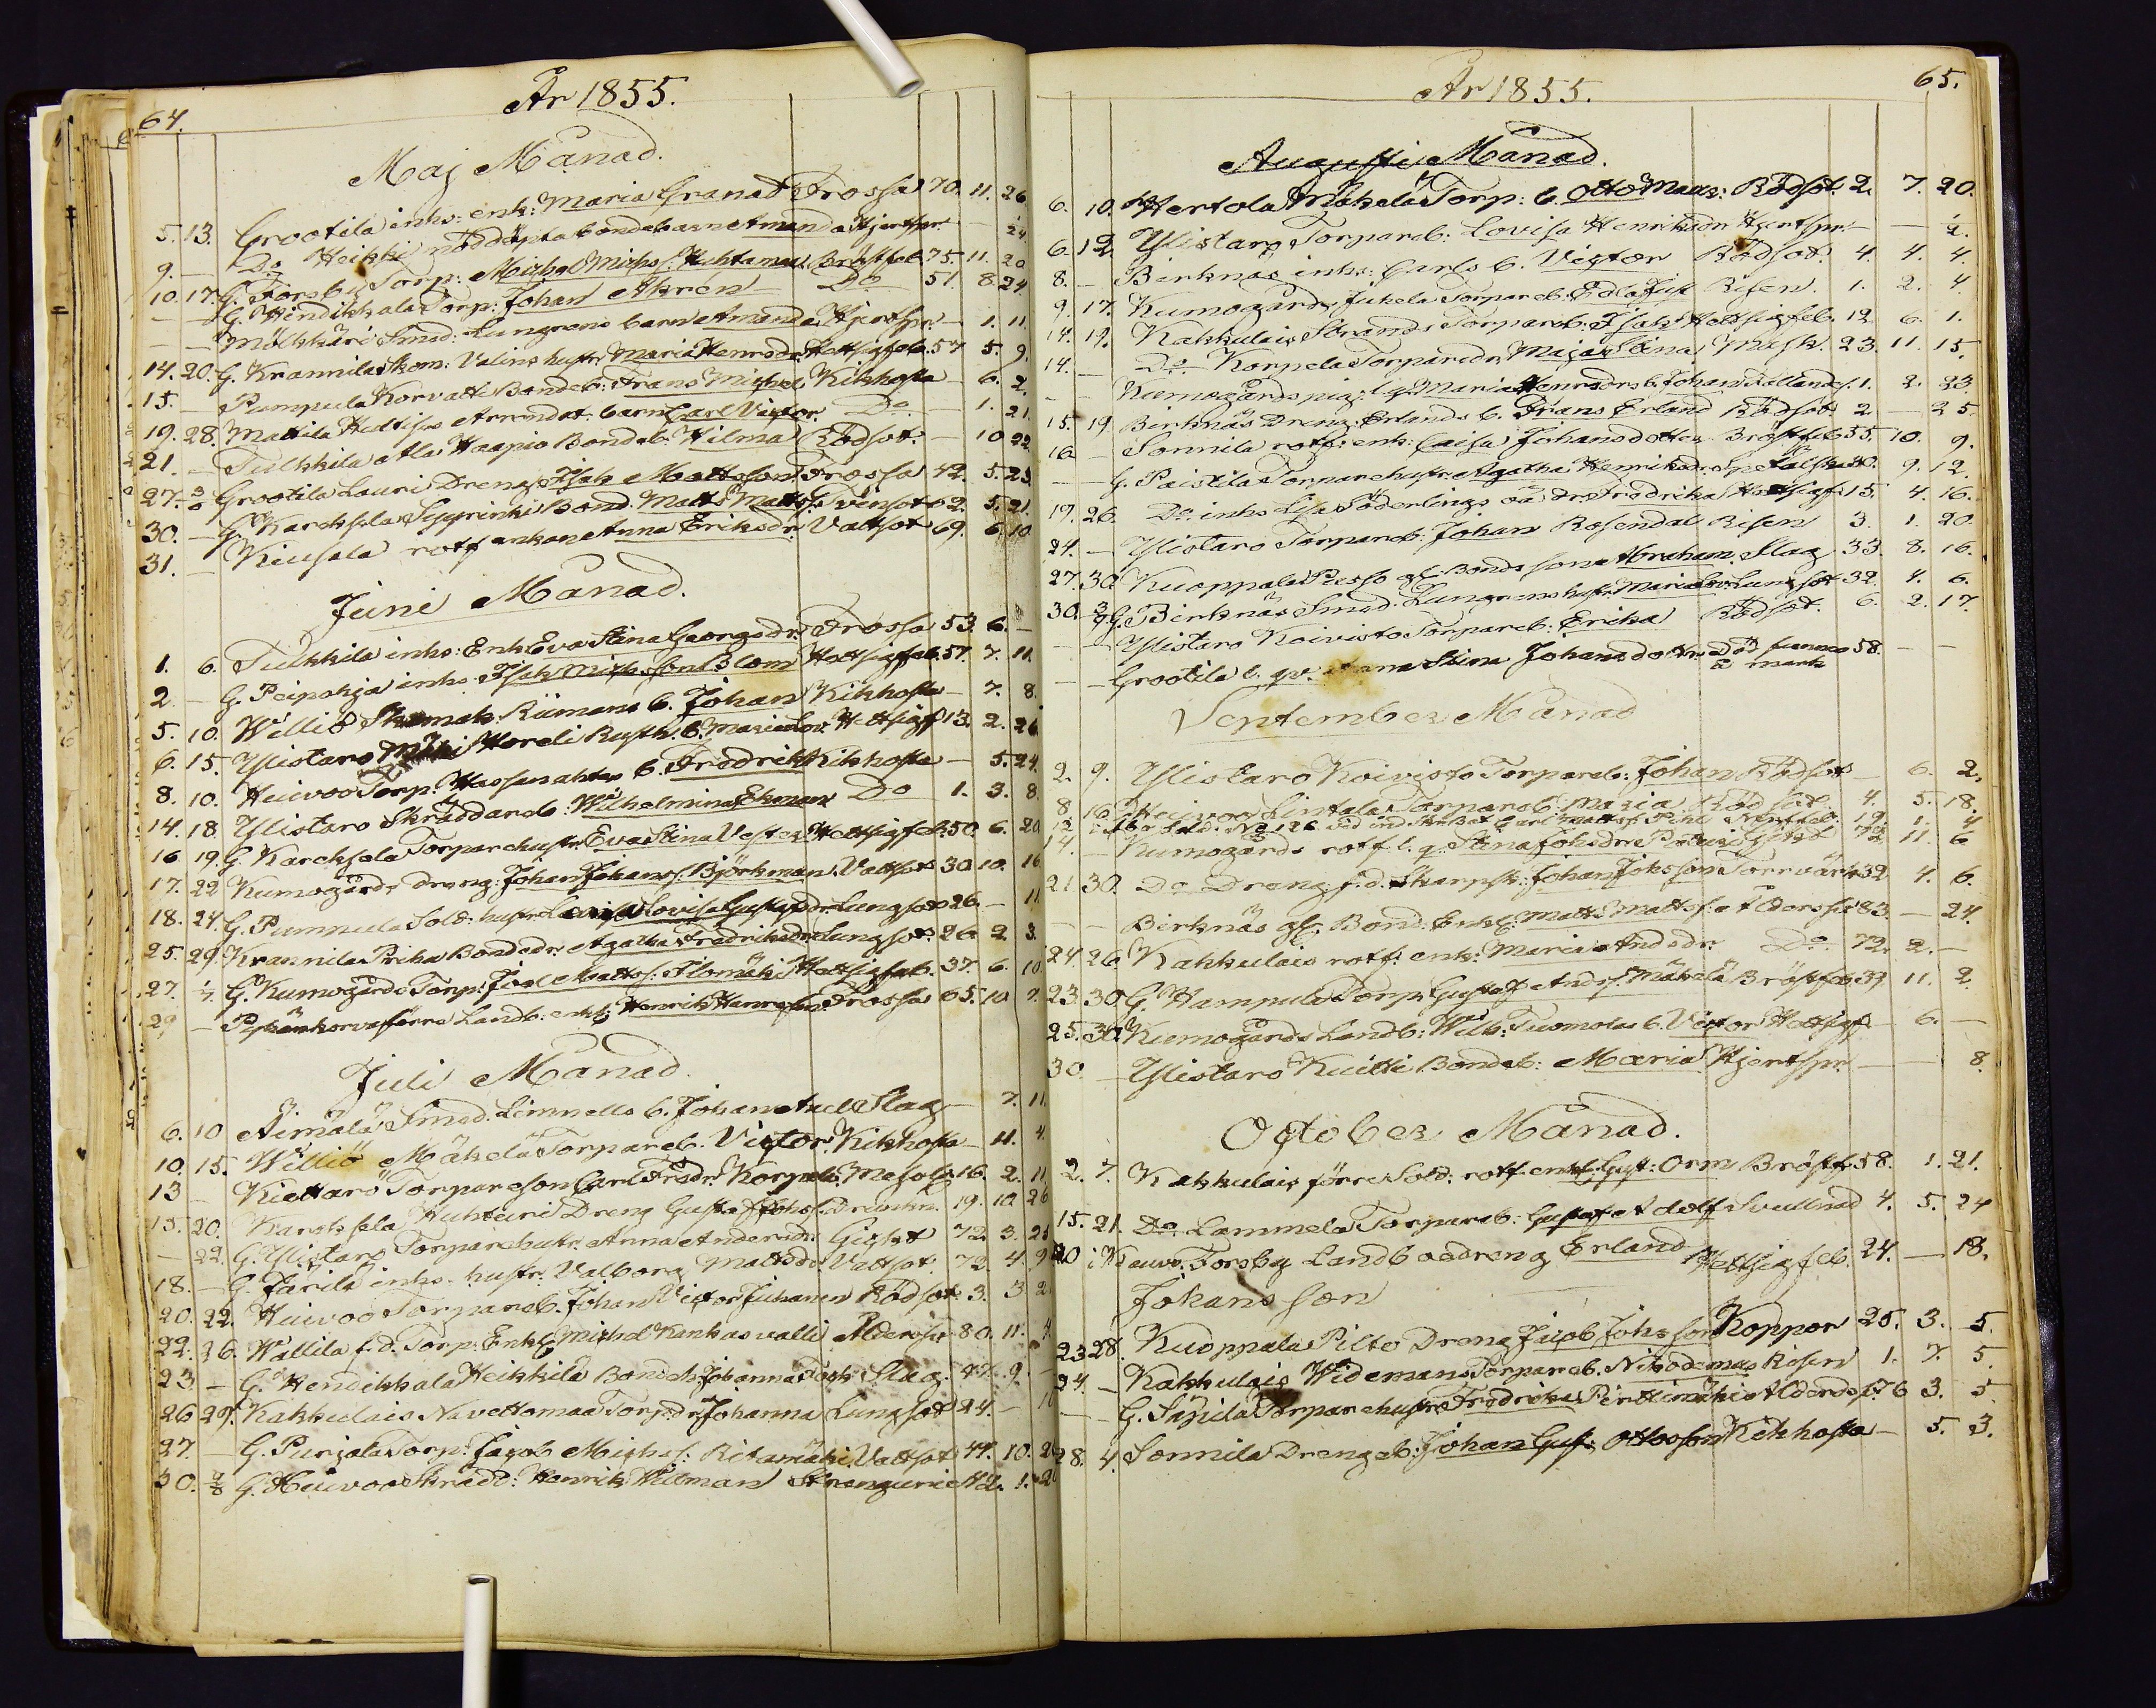 64.
År 1855.
Maj Månad.
5. 13. Grootila inhs: enk: Maria Granat Frossa 70. 11. 26
9. — Do Heikki nöddöpta bondebarn Amanda Hjertspr. — — 24.
10. 17. G. Forsby Torp: Michel Michs: Bröstfeb. 75 11. 20
— — G. Hindikkala Torp: Johan Akren Do 51. 8. 24
— — Mölkkäri Smed: Lungrens barn Amanda Hjertspr. — 1. 11.
14. 20. G. Krannila Skom: Valins hustr: Maria Henrsdr. Hettsigfeb. 57 5. 9.
15. — Pumpula Korvatti Bondeb: Frans Michel Kikhosta — 6. 2.
19. 28. Mattila Arrendat. barn Carl Victor. Do. — 1. 21.
21. — Tulkkila Ala Haapio Bondeb. Hilma Rödsot. — 10 22.
27. 3/6 Grootila Lauri Dreng Isak Mattsson Frossa 42. 5. 23.
30. — G. Karhsela Sepprinki Bond. Matts Matts: Tvinsot 62. 5. 21.
31. — Kiusala rotf enkan Anna Eriksdr. Vattsot 69. 6. 10.
Juni Månad.
1. 6. Tulkkila inhs: Enk Eva Stina Georgsdr. Frossa 53. 6. —
2 — G. Peipohja inhs. Isak Michsson Blom Hettsigfeb. 57. 7. 11.
5. 10. Williö Skomak. Riimans b. Johan Kikhosta — 7. 8.
6. 15. Ylistaro Mäki Horeli Rusth. b. Maria Lov. Hettsigf. 13. 2. 26.
8. 10. Huivoo Torp. b. Fredrik Kikhosta — 5. 24.
14. 18. Ylistaro Skräddareb. Wilhelmina Ekman Do 1. 3. 8.
16 19. G. Karehsela Torparehustr. Eva Stina Vester Hettsigfeb. 50. 6. 20
17. 22 Kumogårds dreng: Johan Johans: Björkman Vattsot 30 10. 16
18. 24. G. Pumpula Sold: hustr Lovisa Gustafsdr. Lungsot 26. — 11.
25. 29. Krannila Priha Bondedr. Agatha Fredriksdr. Lungsot. 26 2 3.
27. 1/7. G. Kumogårds Torp: Joel Matts: Ilomäki Hettsigfeb. 37. 6. 10
29 — förra Landb. enkl: Henrik Henrsson Frossa 65. 10 7.
Juli Månad.
6. 10 Äimälä Smed. Limnells b. Johan Axel Slag — 7. 11.
10. 15. Williö Mäkelä Torpareb. Victor Kikhosta — 11. 4.
13 — Kiettarö Torpareson Carl Fredr. Korpela Messling 16. 2. 11
15. 20. Karehsela Huhteiri Dreng Gustaf Johs: Drunkn. 19. 10. 26
— 22. G. Ylistaro Torparehustr. Anna Andersdr. Gigtot 72. 3. 21
18. — G. Jarila inhs. hustr. Valborg Mattsdr. Vattsot. 72. 4. 9
20. 22. Huivoo Torpareb. Johan Victor Juhanen Rödsot. 3. 3. 2
22. 26. Wallila f.d. Torp: Enkl: Michel Kankasvalli Ålderssv. 80. 11. 4
23 — G. Hendikkala Heikkilä Bondeh. Johanna Slag. 47. 9
26 29. Kakkulais Navettomaa Torp:dr. Johanna Lungsot 24. — 10
27. — G. Pirjola Torp: Jacob Michs: Ritamäki Vattsot 44. 10. 2
30. 7/8 G. Huivoo Skräd: Henrik Hilman Strangurie 42. 1. 2
65.
År 1855.
Augusti Månad.
6. 10. Hertola Mäkelä Torp: b. Otto Maur: Rödsot 2. 7. 20.
6. 12 Ylistaro Torpareb: Lovisa Henriksdr. Hjertspr. — — 2.
8. — Birknäs inhs. Carls b. Victor Rödsot. 4. 4. 4.
9. 17. Kumogårds Jukela Torpareb. Edla Just. Risen. 1. 2. 4
14. 19. Kakkulais Strands Torpareb. Isak Hettsigfeb. 12 6 1.
14. — Do Korpela Torparedr. Maja Stina Mask. 23. 11. 15.
— Kumogårds pig: l.q. Maria Henrsdrs b. Johan 1. 2. 23.
15. 19 Birknäs Dreng: Erlands b. Frans Erland Rödsot 2 — 25.
16 — Sonnila rotf: enk: Caisa Johansdotter Bröstfeb 55. 10. 9.
— — G. Paistila Torparehustr. Agatha Henriksdr. 40. 9. 12.
19. 26. Do. inhs Lisa Söderlings oä dr. Fredrika Hettsigf. 15. 4. 16.
24. — Ylistaro Torpareb: Johan Rosendal Risen 3. 1. 20.
27. 30. Kuoppala Piesso gl. Bonde sone Abraham Slag 33. 8. 16.
30. 3/9 G. Birknäs Smed. Lungrens hustr. Maria Lov. Lungsot 32. 4. 6.
— — Ylistaro Koivisto Torpareb: Erika Rödsot. 6. 2. 17.
— — Grootila l. qv. Anna Stina Johansdotter Död funnen å mark 58. — —
September Månad
2. 9. Ylistaro Koivisto Torpareb: Johan Rödsot — 6. 2.
8. 16. Huivoo Lintala Torpareb. Maria Rödsot. 4. 5. 18.
12 Sold. No 126 vid ind. Bat Carl Matts: Nervfeb. 19. 1. 4
14. — Kumogårds rotf l. q. Stina Johsdr. Gigtot 72 11. 6
21. 30. Do Dreng f.d. Skarpsk: Johan Johsson Torrvärk 32 4. 6.
— — Birknäs gl. Bond. Enkl: Matts Matts: Ålderssv. 83. — 24.
24. 26. Kakkulais rotf: enk: Maria Andsdr. Do 72. 2. —
23. 30 G. Hampula Torp: Gustaf Ands: Mäkelä Bröstfeb 39 11. 2.
25. 30. Kumogårds Landb: Wilh: Tuomolas b. Victor Hettsigf. — 6. —
30. — Ylistaro Kuitti Bondeb: Maria Hjertspr. — — 8.
October Månad.
2. 7. Kakkulais förre Sold. rotf. enkl: Gust: Orm Bröstf. 58. 1. 21.
15. 21. Do. Lammela Torpareb: Gustaf Adolf Svullnad 4. 5. 24
20 i Forsby Landb oädreng Erland Hettsigfeb. 24. — 18.
Johansson
23 28. Kuoppala Pilto Dreng Jacob Johsson Koppor 25. 3. 5.
24. — Kakkulais Widemans Torpareb. Nikodemus Risen 1. 7. 5.
— — G. Säpilä Torparehustr. Fredrika Perttimäki Ålderds. 76 3. 5
28. 4. Sonnila Drengeb: Johan Gust: Ottosson Kikhosta — 5. 3.